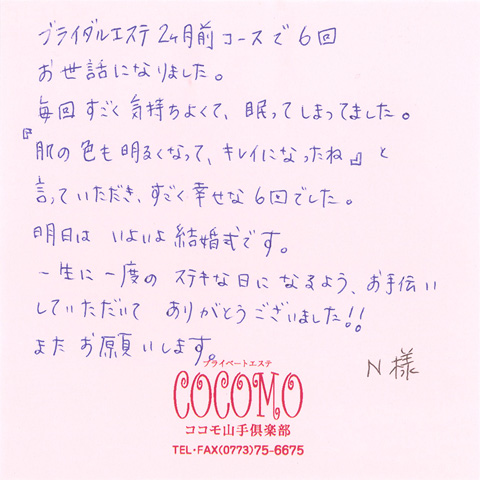 ブライダルエステ 2ヶ月前 コースで 6回
お世話になりました。
毎回 すごく 気持ちよくて、眠ってしまってました。
『肌の色も明るくなって、キレイになったね』と
言っていただき、すごく幸せな6回でした。
明日は いよいよ 結婚式です。
一生に一度の ステキな日になるよう、お手伝い
していただいて ありがとうございました!!
また お願いします。
N 様
プライベートエステ
COCOMO
ココモ山手倶楽部
TEL・FAX(0773)75-6675